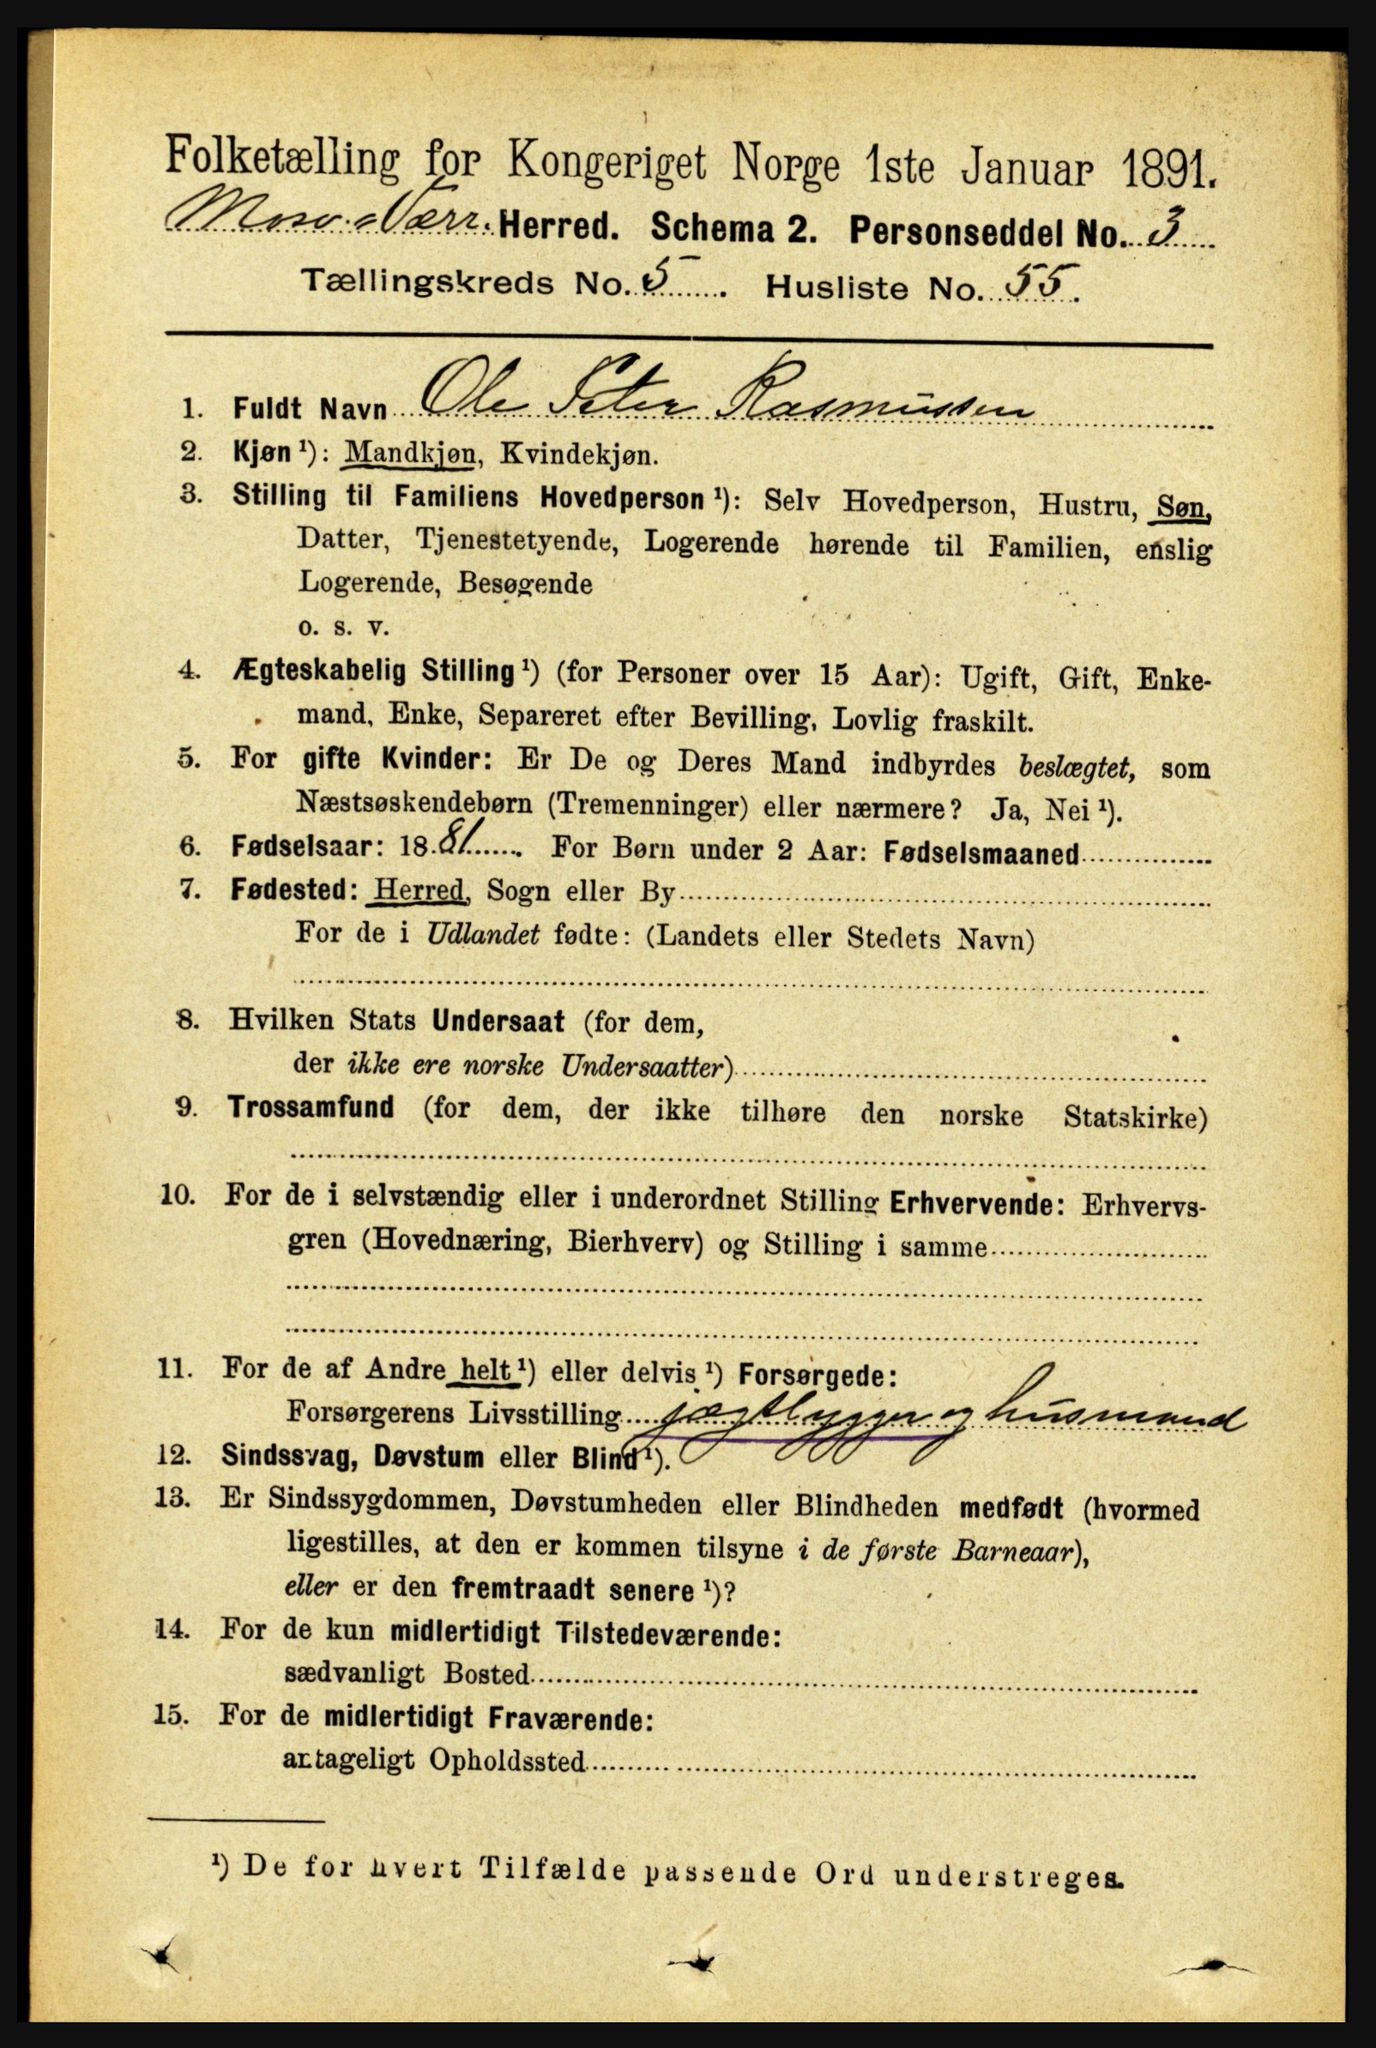 Folketælling for Kongeriget Norge 1ste Januar 1891.
Herred. Schema 2. Personseddel No. 3
Tællingskreds No. 5. Husliste No. 55.
1. Fuldt Navn Ole Peter Rasmussen
2. Kjøn ¹): Mandkjøn, Kvindekjøn.
3. Stilling til Familiens Hovedperson ¹): Selv Hovedperson, Hustru, Søn,
Datter, Tjenestetyende, Logerende hørende til Familien, enslig
Logerende, Besøgende
o. s. v.
4. Ægteskabelig Stilling ¹) (for Personer over 15 Aar): Ugift, Gift, Enke-
mand, Enke, Separeret efter Bevilling, Lovlig fraskilt.
5. For gifte Kvinder: Er De og Deres Mand indbyrdes beslægtet, som
Næstsøskendebørn (Tremenninger) eller nærmere? Ja, Nei ¹).
6. Fødselsaar: 1881. For Børn under 2 Aar: Fødselsmaaned
7. Fødested: Herred, Sogn eller By
For de i Udlandet fødte: (Landets eller Stedets Navn)
8. Hvilken Stats Undersaat (for dem,
der ikke ere norske Undersaatter)
9. Trossamfund (for dem, der ikke tilhøre den norske Statskirke)
10. For de i selvstændig eller i underordnet Stilling Erhvervende: Erhvervs-
gren (Hovednæring, Bierhverv) og Stilling i samme
11. For de af Andre helt ¹) eller delvis ¹) Forsørgede:
Forsørgerens Livsstilling jægtbygger og husmand
12. Sindssvag, Døvstum eller Blind ¹).
13. Er Sindssygdommen, Døvstumheden eller Blindheden medfødt (hvormed
ligestilles, at den er kommen tilsyne i de første Barneaar),
eller er den fremtraadt senere ¹)?
14. For de kun midlertidigt Tilstedeværende:
sædvanligt Bosted
15. For de midlertidigt Fraværende:
antageligt Opholdssted
¹) De for hvert Tilfælde passende Ord understreges.